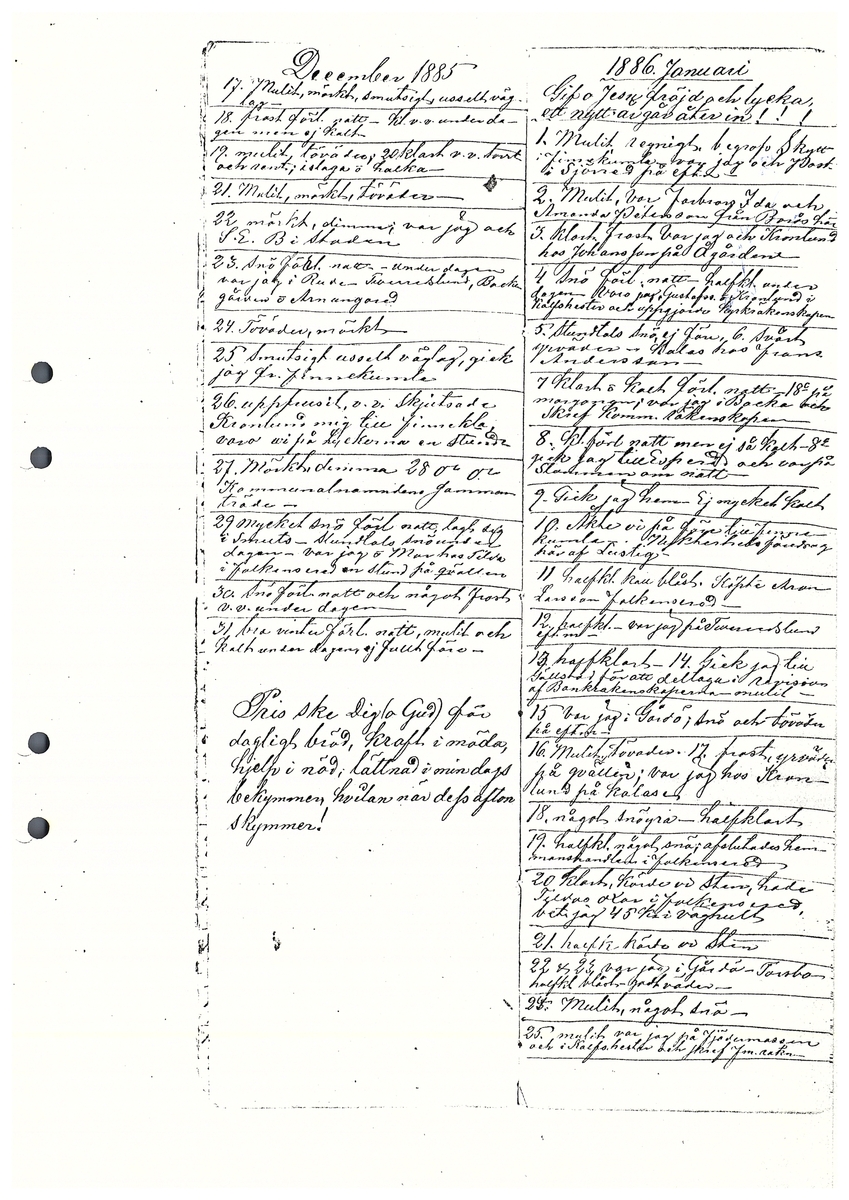 December 1885
17. Mulit, mörkt, smutsigt, usselt väg-
lag-
18. frost förl. natt - kl v.v. under da-
gen men ej kallt
19. mulit, töväder, 20 klart v.v. torrt
och rent; islaga ö halka-
21. Mulit, mörkt, töväder-
22 mörkt, dimma; var jag och
S. E. B i Staden
23. Snö förl. natt - under dagen
var jag i Rude Tvereredslund, Backe
gården ö Arnungared
24. Töväder, mörkt-
25 Smutsigt usselt väglag, gick
jag fr. Finnekumla
26. uppfrusit, v.v. Skjutsade
Kronlund mig till Finnekla,
voro vi på Lyckorna en stund
27. Mörkt, dimma 28 o o
Kommunalnämndens samman
träde-
29 mycket snö förl natt, lagt sig
i smuts - stundtals snö under
dagen - var jag ö Mor hos Tilda
i Falkensered en stund på qvällen
30. Snö förl. natt och något frost
v.v. under dagen-
31. bra vinter förl. natt, mulit och
kallt under dagen, ej fullt före-
Pris ske Dig (o Gud) för
dagligt bröd, kraft i möda,
hjelp i nöd; lättnad i min dags
bekymmer, hvilan när dess afton
skymmer!
1886. Januari
Gif o Jesu fröjd och lycka,
ett nytt år går åter in! ! !
1. Mulit regnigt, begrofs Skytt
i Finnekumla, var jag och
i Sjövred på eft.
2. Mulit, var Farbror Ida och
Amanda Petersson från Borås här
3. klart, frost. Var jag och Kronlund
hos Johansson på Ågården
4 Snö förl. natt - halfkl. under
dagen Voro jag, Gustafss. ö Kronlund i
Kalfshester och uppgjorde Kyrkräkenskapen
5. Stundtals snö, ej före, 6. Svårt
yrväder - Kalas hos Frans
Andersson-
7 Klart ö kallt förl. natt - 18c på
morgonen; var jag i Backa och
Skref Komm. räkenskapen
8. Kl. förl natt men ej så kallt - 8c
gick jag till och var på
om natt-
9. Gick jag hem - Ej mycket kallt
10. Åkte vi på före till Finne-
kumla. Nykterhetsföredrag
här af Lustig-
11 halfkl. kall blåst. Köpte Aron
Larsson Falkensered-
12. halfkl - var jag på Tvereredslund
eft.m-
13 halfklart - 14. Gick jag till
Gällstad för att deltaga i revision
af Bankräkenskaperna - mulit-
15 var jag i Gärdö; snö och töväder
på eft.m-
16. Mulit, töväder. 17. frost, yrväder
på qvällen; var jag hos Kron-
lund på kalaset
18. något snögra - halfklart
19. halfkl. något snö; afslutades hem
manshandeln i Falkensered
20 Klart, körde vi Sten, hade
Tildas oxar i Falkensered,
bet. jag 45 Kr i väghult
21. halfk. körde vi Sten
22 & 23 var jag i Gärdö - Torsbo
halfkl blåst godt väder-
24. Mulit, något snö-
25. mulit var jag på Fjädermossen
och i Kalfshester och skref